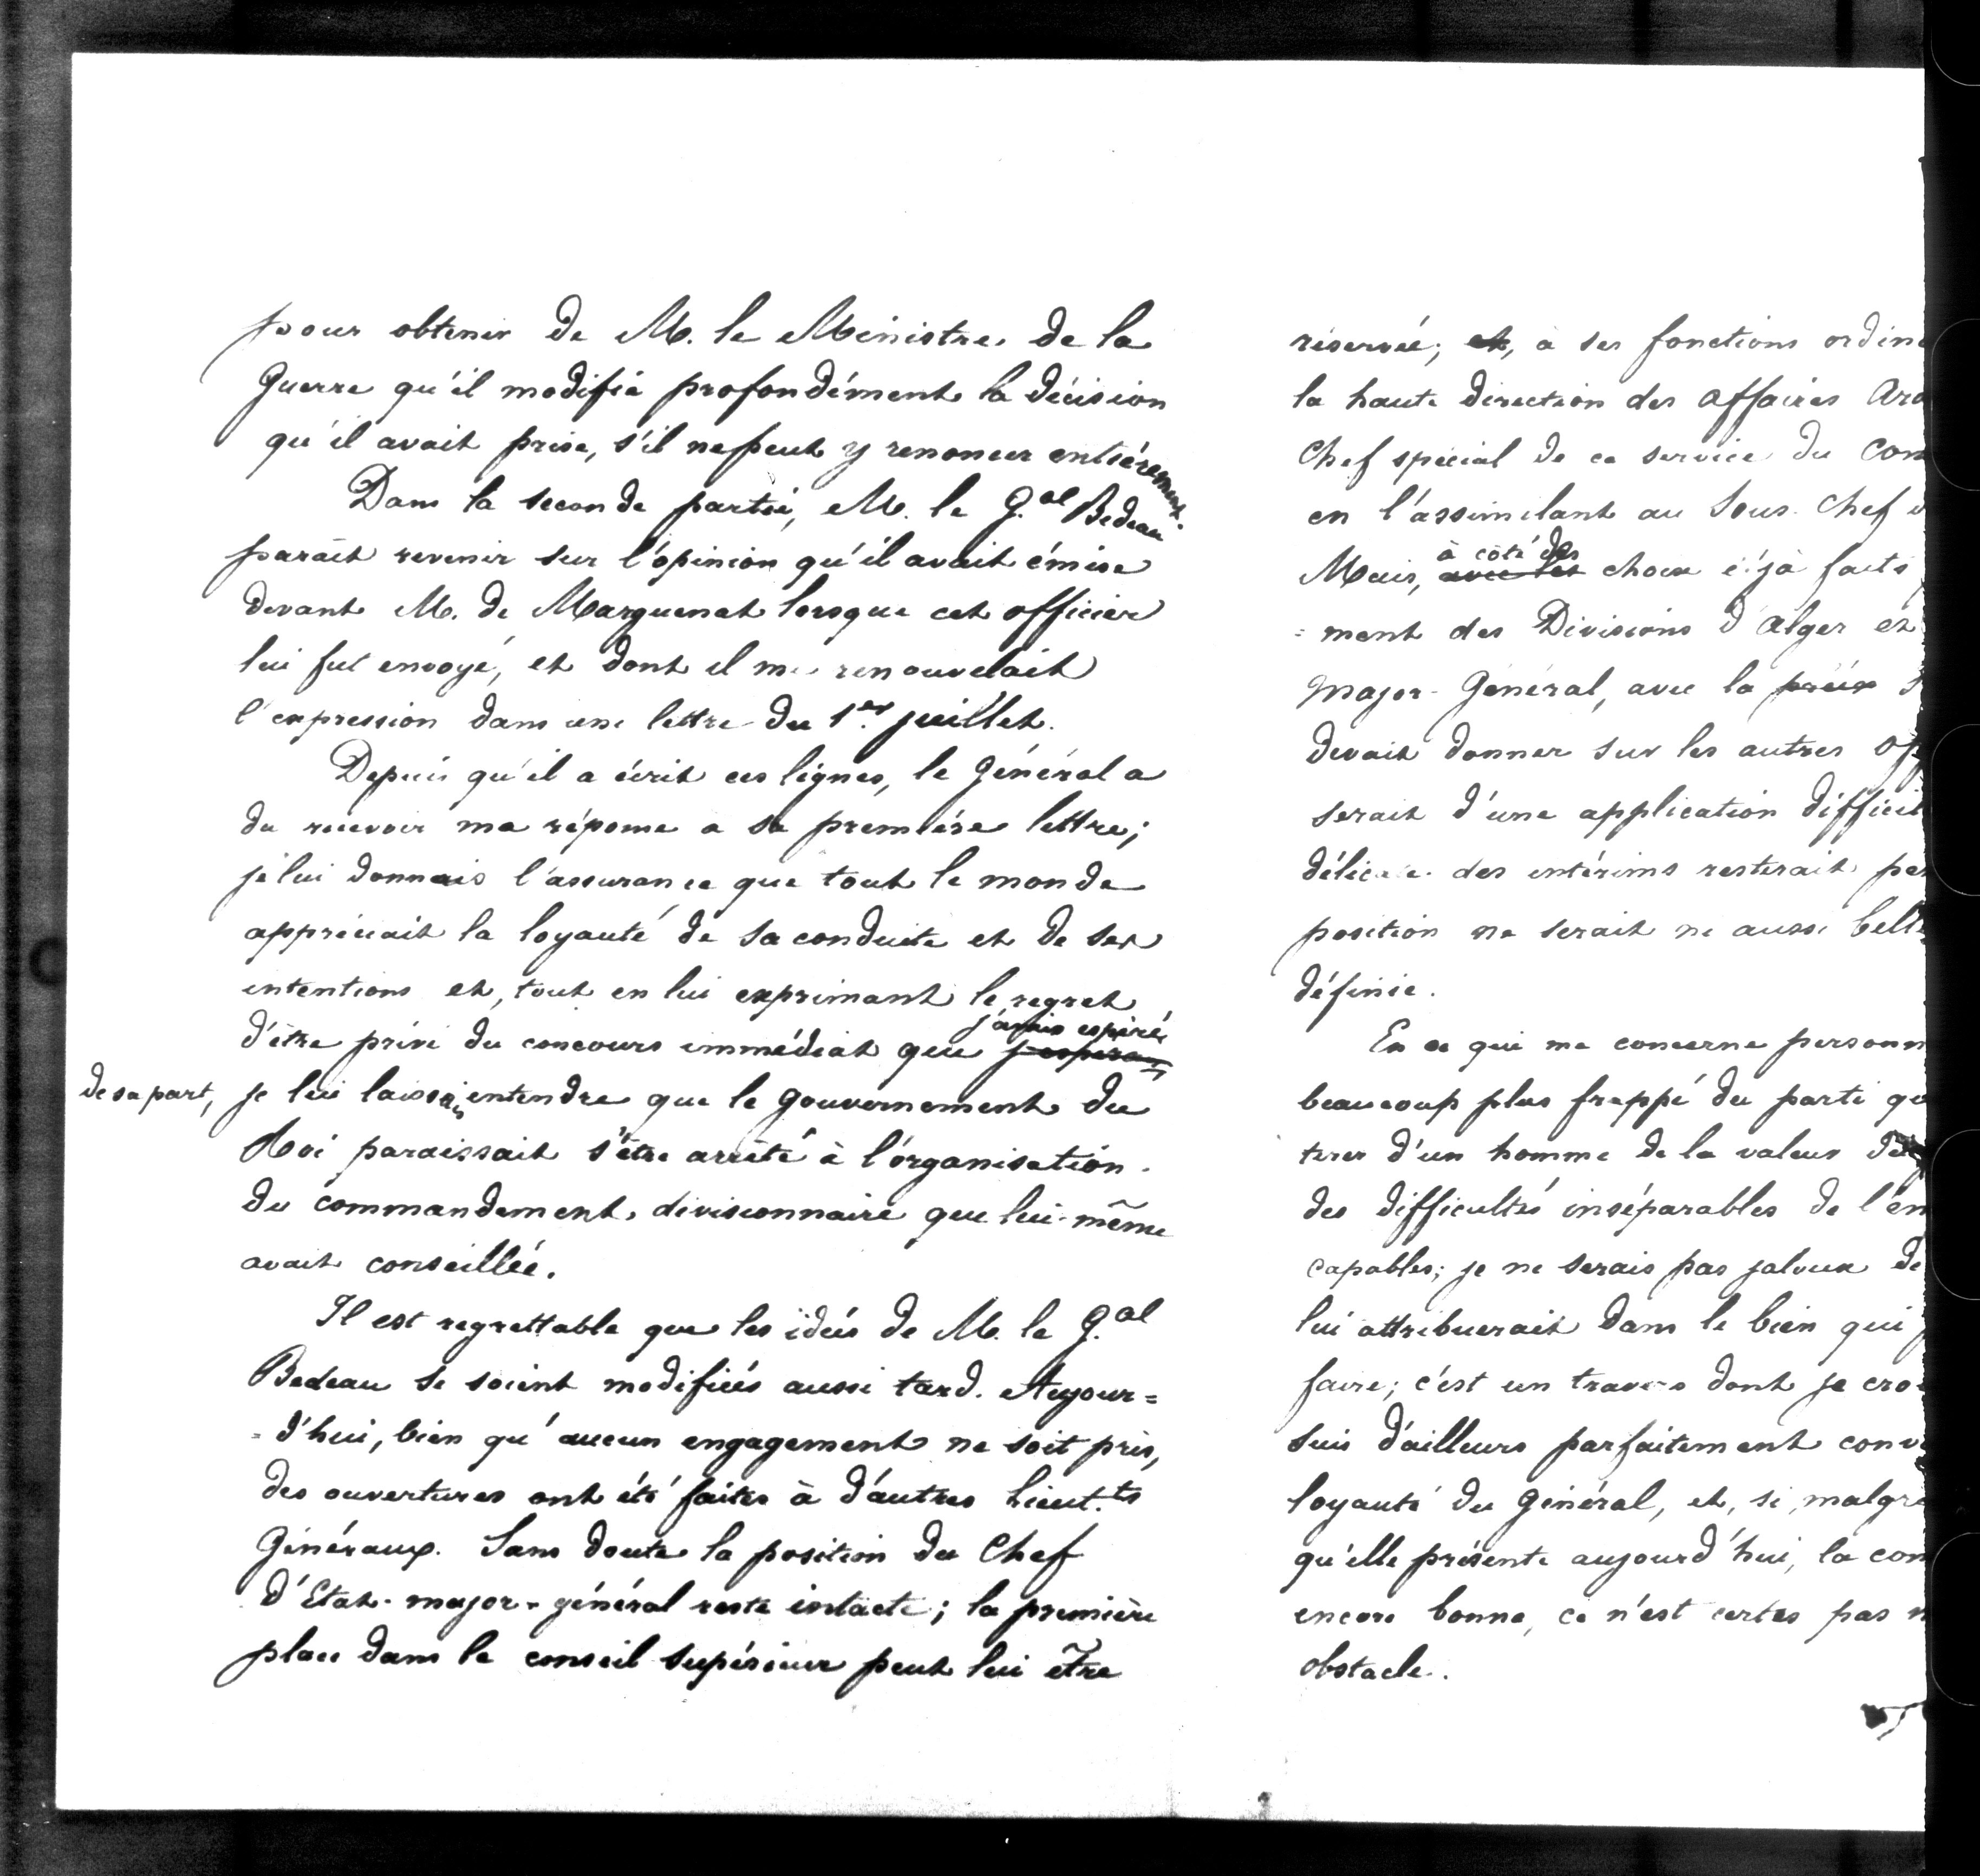 pour obtenir de M. le Ministre de la
Guerre qu'il modifie profondément la décision
qu'il avait prise, s'il ne peut y renoncer entièrement.
Dans la seconde partie, M. le G.al Bedeau
paraît revenir sur l'opinion qu'il avait émise
devant M. de Marguenat lorsque cet officier
lui fut envoyé, et dont il me renouvelait
l'expression dans une lettre du 1er juillet.
Depuis qu'il a écrit ces lignes, le Général a
du recevoir ma réponse a sa première lettre;
je lui donnais l'assurance que tout le monde
appréciait la loyauté de sa conduite et de ses
intentions et, tout en lui exprimant le regret
j'avais espéré
d'être privé du concours immédiat que j'espérais
de sa part, je lui laissais entendre que le gouvernement du
Roi paraissait s'être arrêté à l'organisation
du commandement divisionnaire que lui-même
avait conseillée.
Il est regrettable que les idées de M. le G.al
Bedeau se soient modifiées aussi tard. Aujour=
=d'hui, bien qu'aucun engagement ne soit pris,
des ouvertures ont été faites à d'autres Lieut.ts
Généraux. Sans doute la position du Chef
d'Etat-major-général reste intacte; la première
place dans le conseil supérieur peut lui être
réservée; et, à ses fonctions ordin
la haute direction des affaires Ara
Chef spécial de ce service du Com
en l'assimilant au Sous-Chef
à côté des
Mais, avec les choix déjà faits
=ment des Divisions d'Alger et
Major-Général, avec la
devait donner sur les autres of
serait d'une application difficil
délicate des intérims resterait pe
position ne serait ni aussi belle
définie.
En ce qui me concerne personn
beaucoup plus frappé du parti qu
tirer d'un homme de la valeur
des difficultés inséparables de l'em
capables; je ne serais pas jaloux de
lui attribuerait dans le bien qui
faire; c'est un travers dont je cro
suis d'ailleurs parfaitement conv
loyauté du Général, et, si, malgré
qu'elle présente aujourd'hui, la com
encore bonne, ce n'est certes pas m
obstacle.